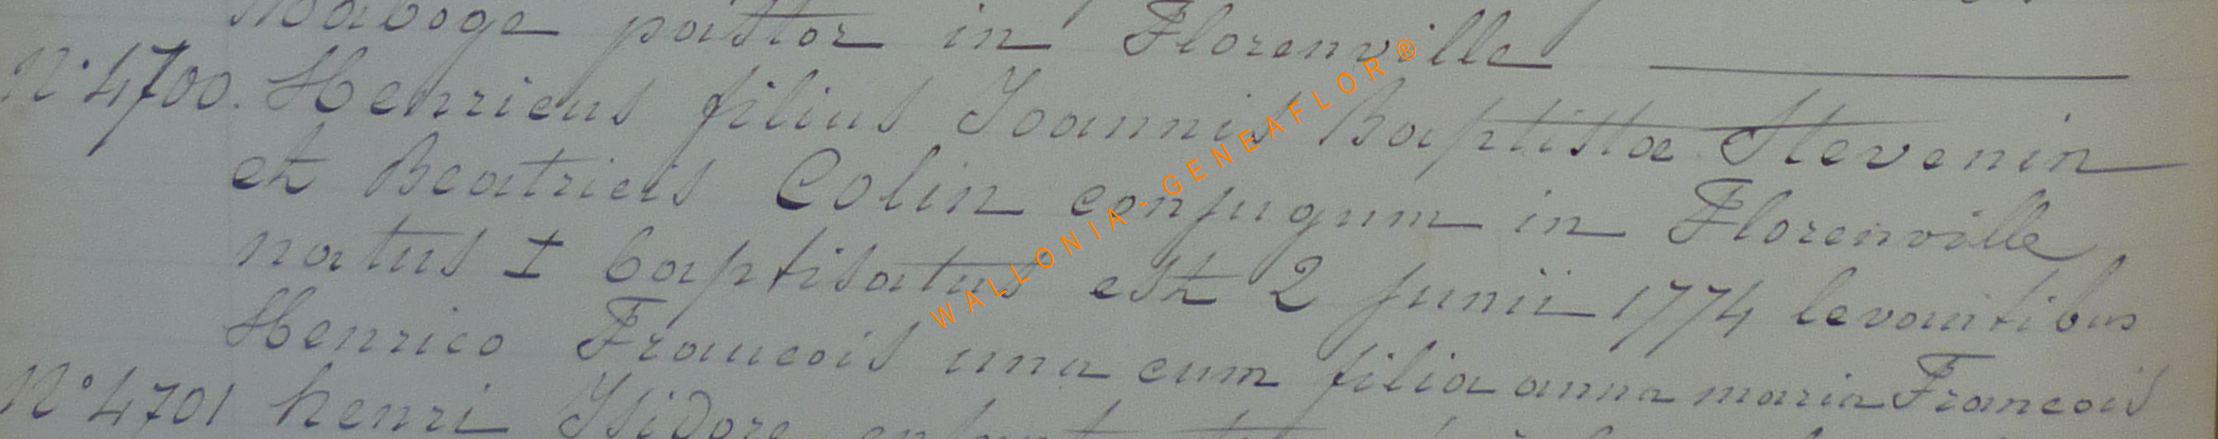 Maboge pastor in Florenville
N° 4700. Henricus filius Joannis Baptistæ Stevenin
et Beatricis Colin conjugum in Florenville
natus I baptisatus est 2 junii 1774 levantibus
Henrico Francois una cum filia anna maria Francois
N° 4701 henri Isidore enfant
WALLONIA - GENEAFLOR®